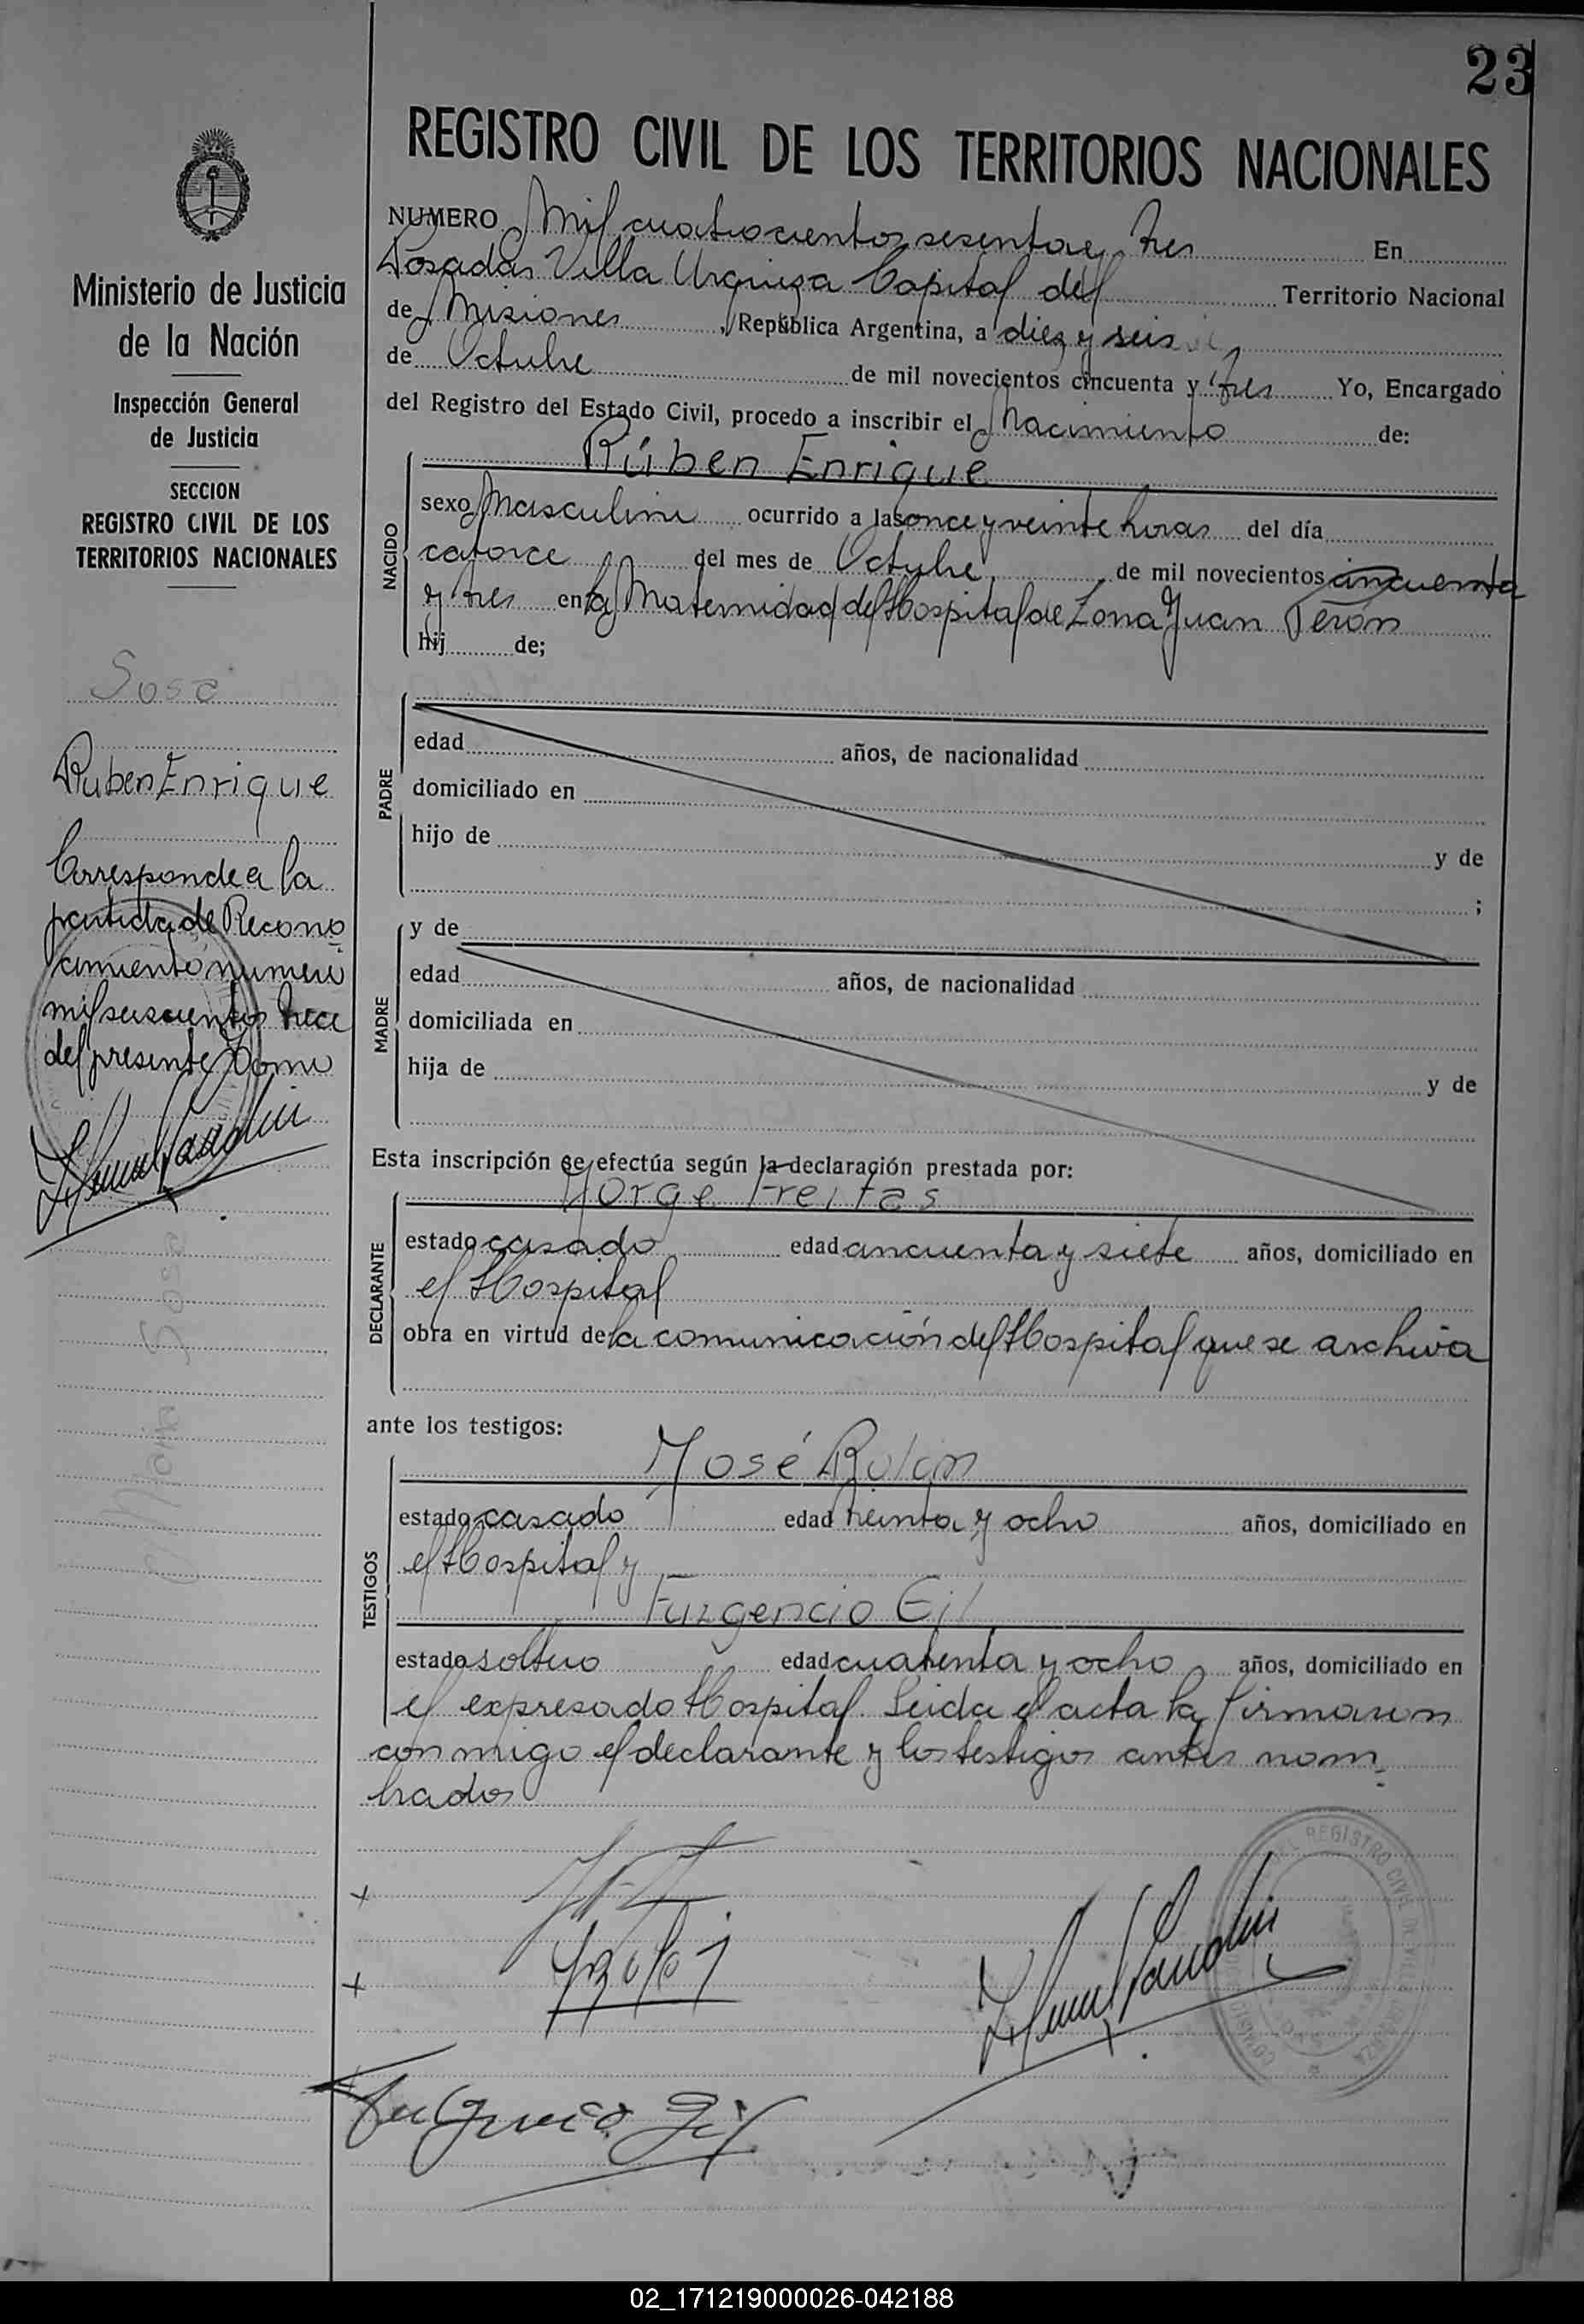 23
REGISTRO CIVIL DE LOS TERRITORIOS NACIONALES
Ministerio de Justicia
de la Nación
Inspección General
de Justicia
SECCION
REGISTRO CIVIL DE LOS
TERRITORIOS NACIONALES
Sosa
Ruben Enrique
Corresponde a la
partida de Recono
cimiento numero
mil seiscientos trece
del presente tomo
NUMERO Mil cuatrocientos sesenta y tres En
Posadas Villa Urquiza Capital del Territorio Nacional
de Misiones, República Argentina, a diez y seis
de Octubre de mil novecientos cincuenta y tres Yo, Encargado
del Registro del Estado Civil, procedo a inscribir el Nacimiento de:
NACIDO
Rúben Enrique
sexo Masculino ocurrido a las once y veinte horas del día
catorce del mes de Octubre, de mil novecientos cincuenta
y tres en la Maternidad del Hospital de Zona Juan Perón
hij de;
PADRE
edad años, de nacionalidad
domiciliado en
hijo de y de
;
MADRE
y de
edad años, de nacionalidad
domiciliada en
hija de y de
Esta inscripción se efectúa según la declaración prestada por:
DECLARANTE
Jorge Freitas
estado casado edad cincuenta y siete años, domiciliado en
el Hospital
obra en virtud de la comunicación del Hospital que se archiva
ante los testigos:
TESTIGOS
José Rolón
estado casado edad treinta y ocho años, domiciliado en
el Hospital y
Fuzgencio Gil
estado soltero edad cuarenta y ocho años, domiciliado en
el expresado Hospital. Leida el acta la firmaron
conmigo el declarante y los testigos antes nom
brados
Fulgencio Gil
02_171219000026-042188